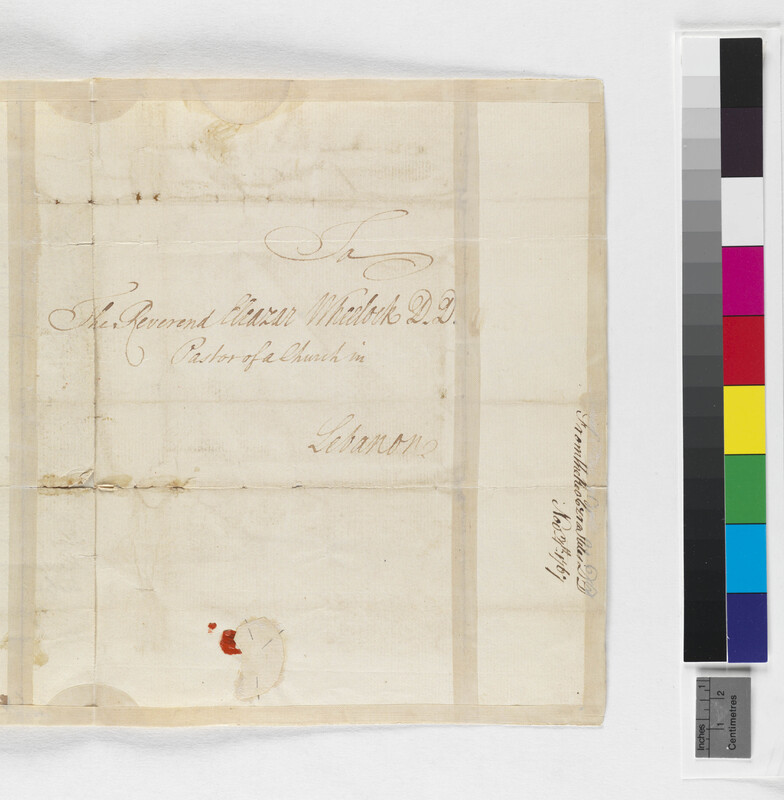 To
The Reverend Eleazar Wheelock D.D.
Pastor of a Church in
Lebanon
From the Rev Ezra Stiles DD
Nov 1767
Inches
1
Centimetres
1 2